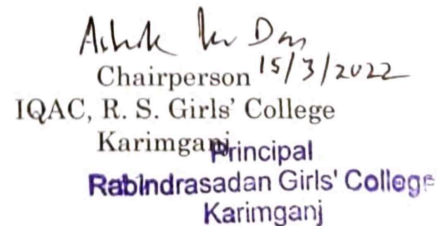 Ashok Kr Das
Chairperson 15/3/2022
IQAC, R. S. Girls' College
Karimganj
Principal
Rabindrasadan Girls' College
Karimganj